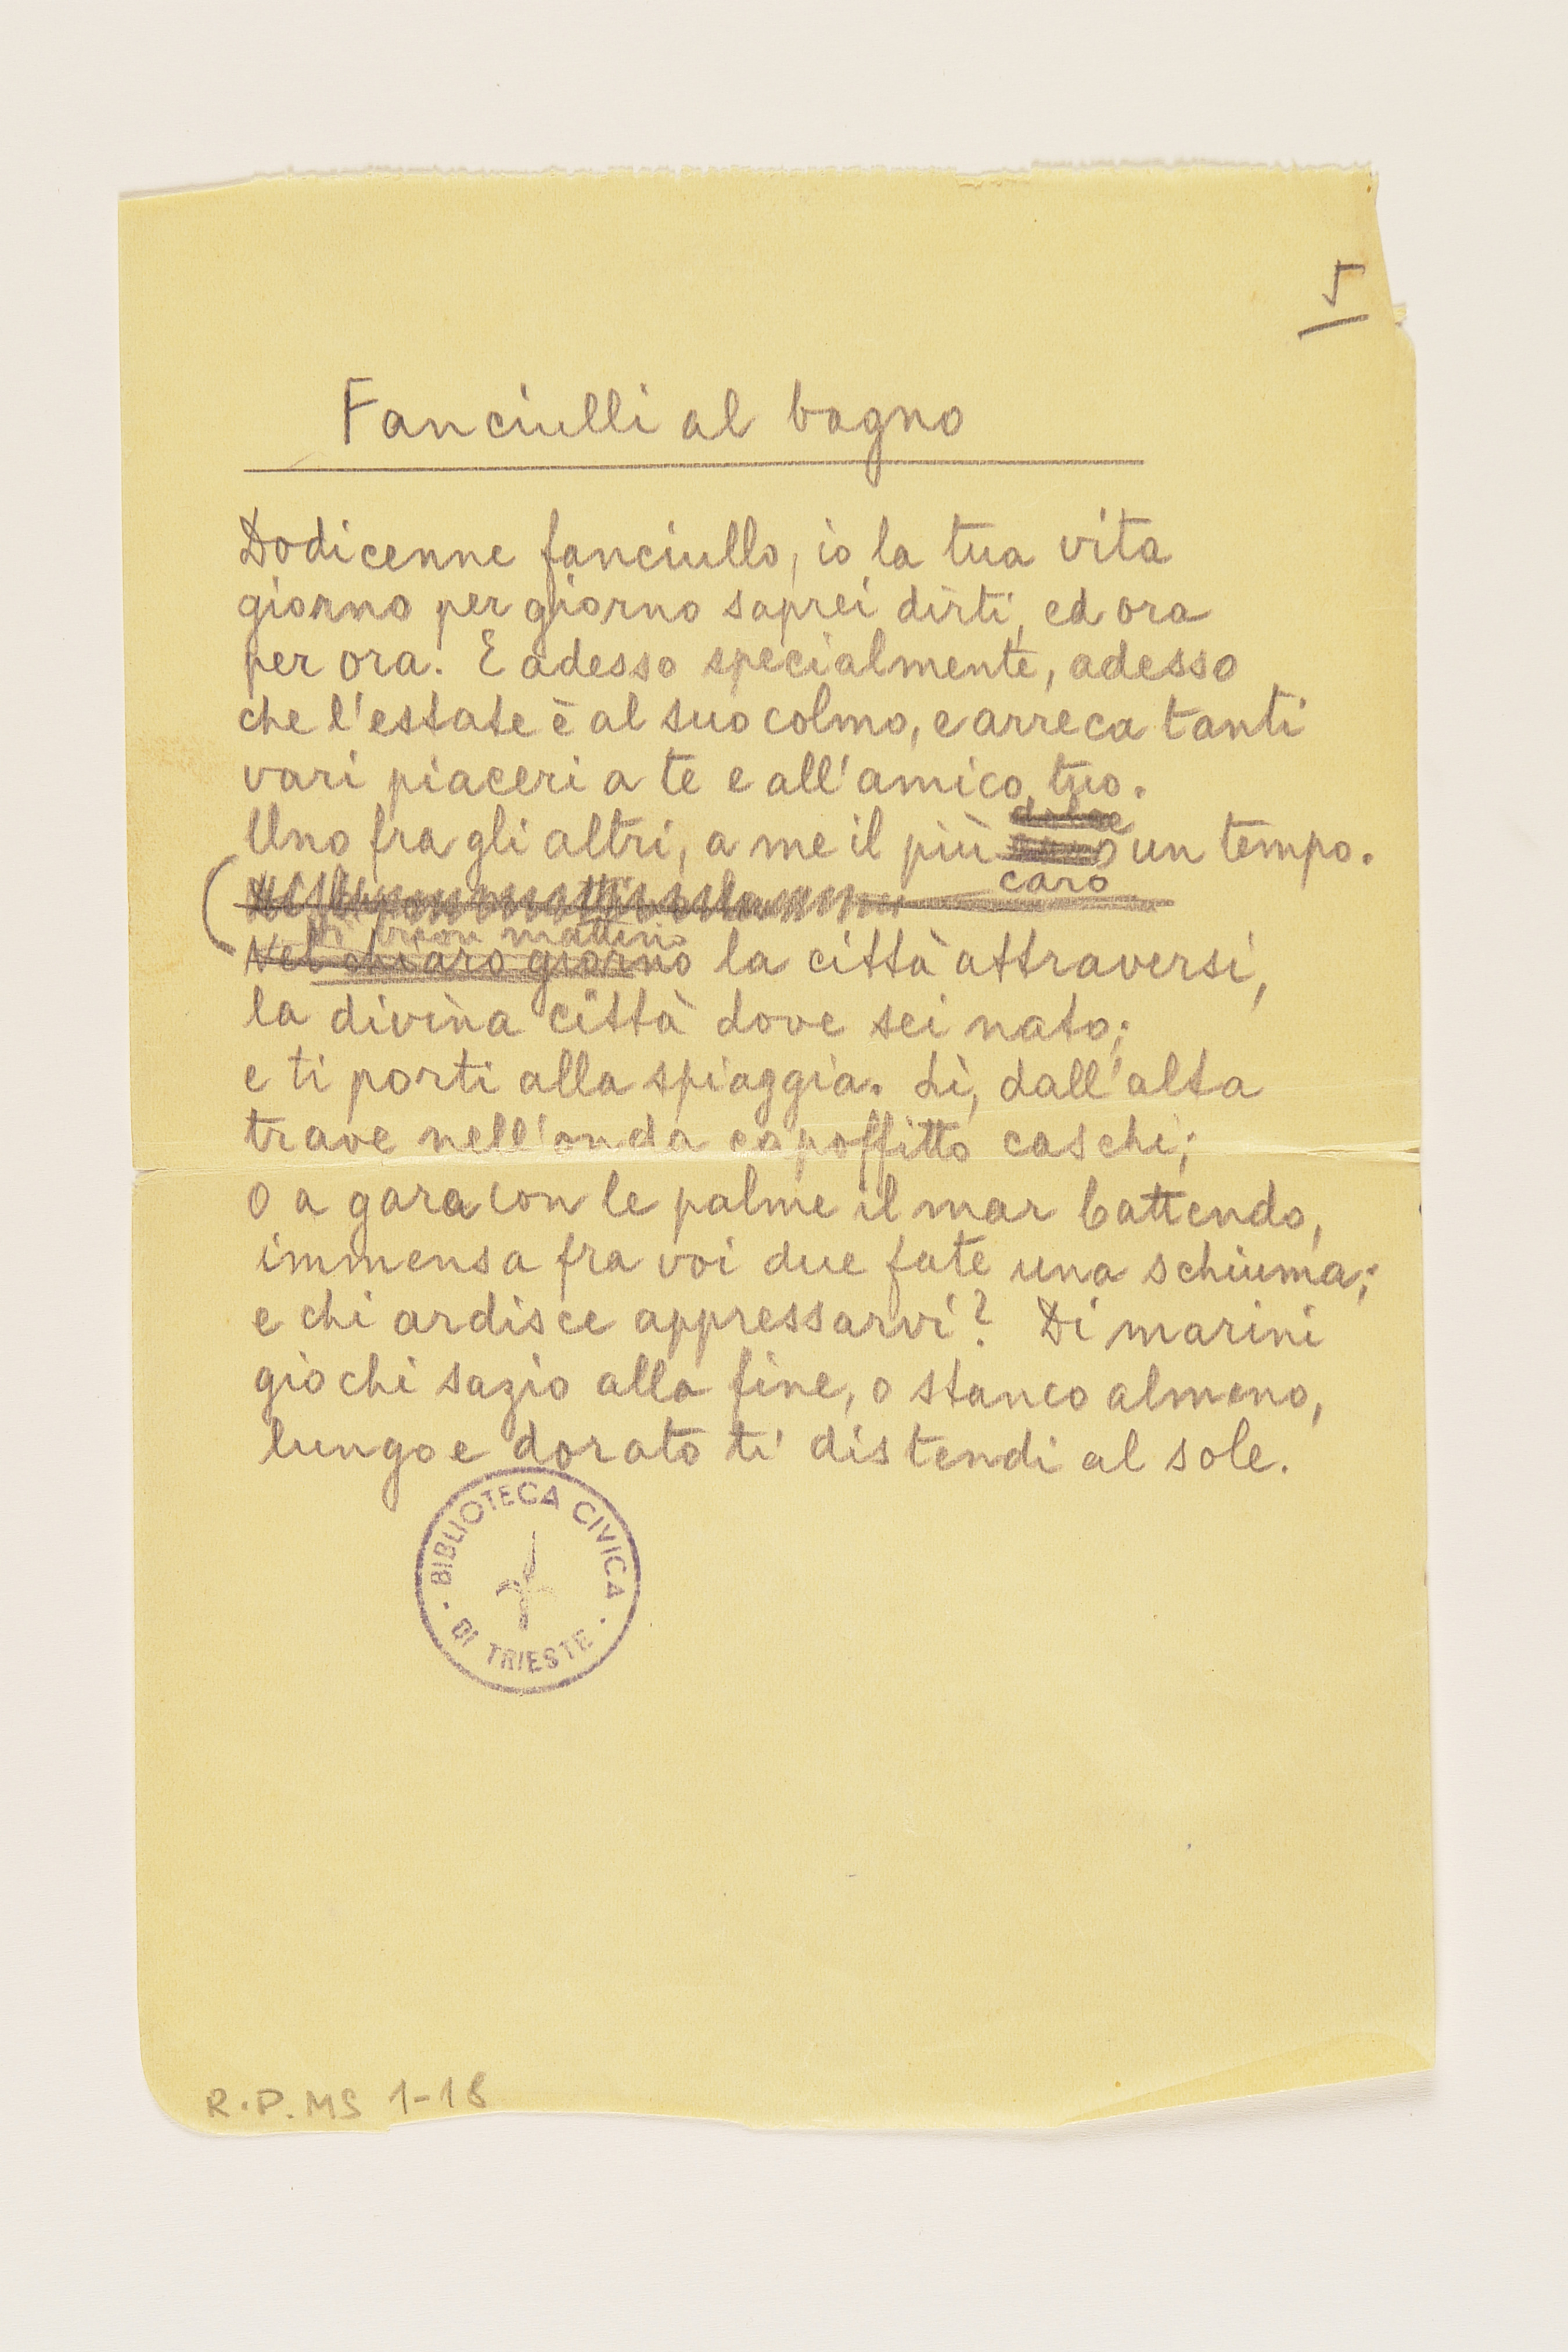 5
Fanciulli al bagno
Dodicenne fanciullo, io la tua vita
giorno per giorno saprei dirti, ed ora
per ora. E adesso specialmente, adesso
che l'estate è al suo colmo, e arreca tanti
vari piaceri a te e all'amico tuo.
dolce
Uno fra gli altri, a me il più un tempo.
caro
Di buon mattino
Nel chiaro giorno la città attraversi,
la divina città dove sei nato;
e ti porti alla spiaggia. Lì, dall'alta
trave nell'onda capoffitto caschi;
o a gara con le palme il mar battendo,
immensa fra voi due fate una schiuma;
e chi ardisce appressarvi? Di marini
giochi sazio alla fine, o stanco almeno,
lungo e dorato ti distendi al sole.
BIBLIOTECA CIVICA
DI TRIESTE
R.P. MS 1-18